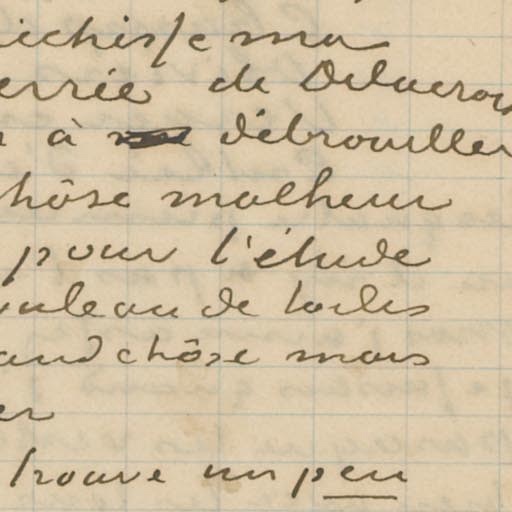 ichisse ma
errée de Delacroix
à débrouiller
hôse malheur
pour l'étude
ouleau de toiles
andchôse mais
er
trouve un peu